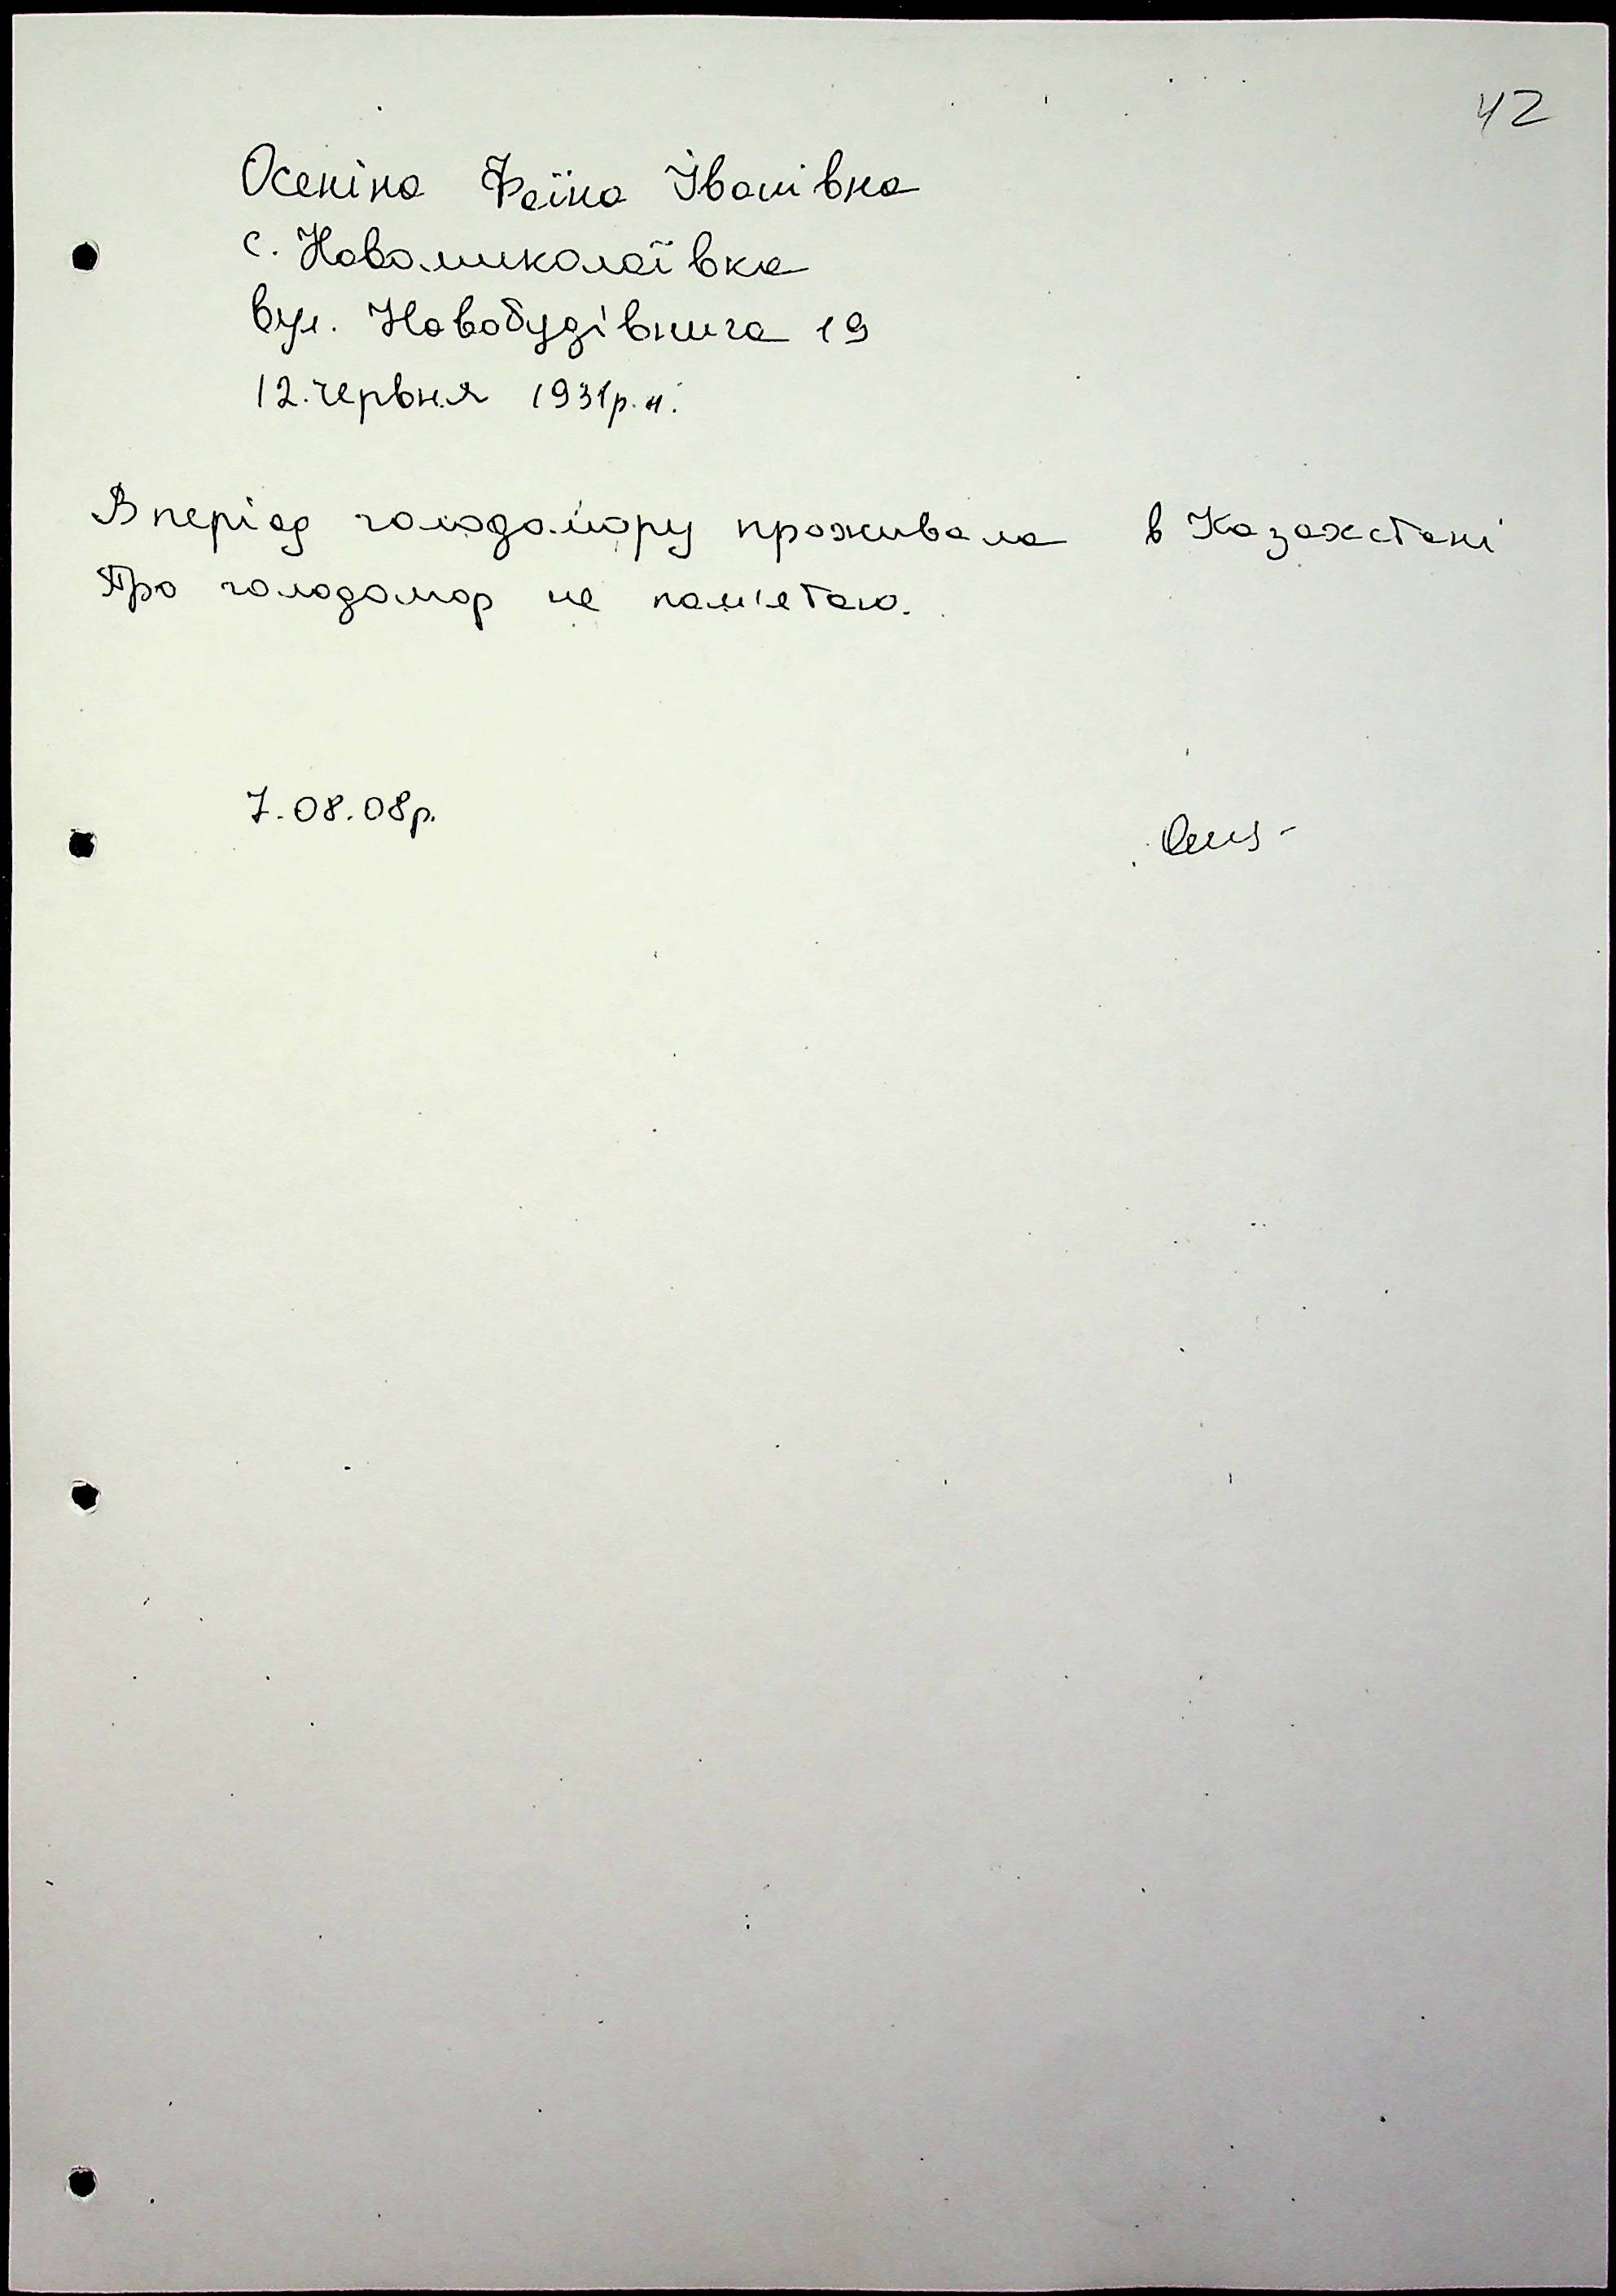 42
Осеніна Фаїна Іванівна
с. Новомиколаївка
вул. Новобудівнича 19
12. червня 1931р.н.
В період голодомору проживала в Казахстані
Про голодомор не пам'ятаю.
7.08.08р.